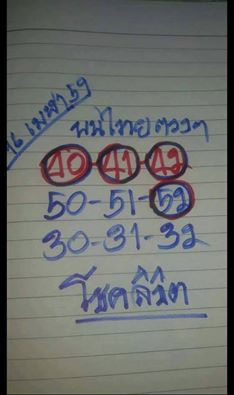 16 เมษา 59
พบไทยตรงๆ
40-41-42
50-51-52
30-31-32
โชคลิขิต